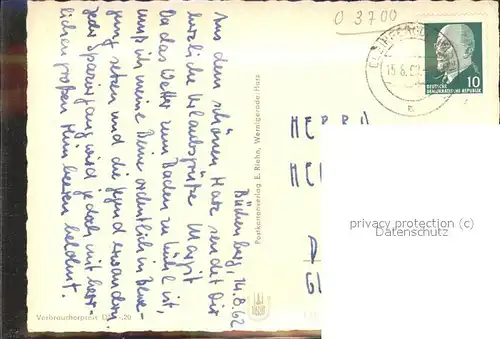 O 3700
15.8.62
10
DEUTSCHE
DEMOKRATISCHE REPUBLIK
Büchenberg, 14.8.62
Aus dem schönen Harz sendet Dir
herzliche Urlaubsgrüße Margit
Da das Wetter zum Baden zu kühl ist,
muß ich meine Beine ordentlich in Bewe-
gung setzen und die Gegend erwandern.
Jeder Spaziergang wird jedoch mit herr-
lichen großen Himbeeren belohnt.
Postkartenverlag E. Riehn, Wernigerode/Harz
HERRN
HE
D
GL
privacy protection (c)
Datenschutz
Verbraucherpreis